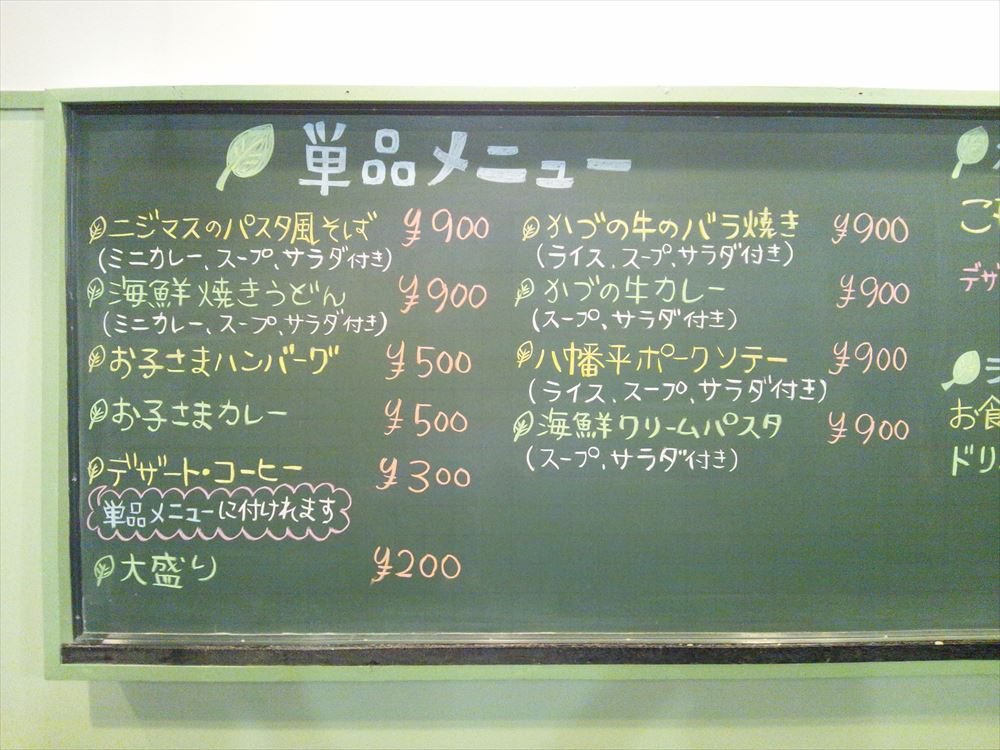 単品メニュー
ニジマスのパスタ風そば ¥900
(ミニカレー、スープ、サラダ付き)
海鮮焼きうどん ¥900
(ミニカレー、スープ、サラダ付き)
お子さまハンバーグ ¥500
お子さまカレー ¥500
デザート・コーヒー ¥300
単品メニューに付けれます
大盛り ¥200
かづの牛のバラ焼き ¥900
(ライス、スープ、サラダ付き)
かづの牛カレー ¥900
(スープ、サラダ付き)
八幡平ポークソテー ¥900
(ライス、スープ、サラダ付き)
海鮮クリームパスタ ¥900
(スープ、サラダ付き)
ご
デザ
ラ
お食
ドリ